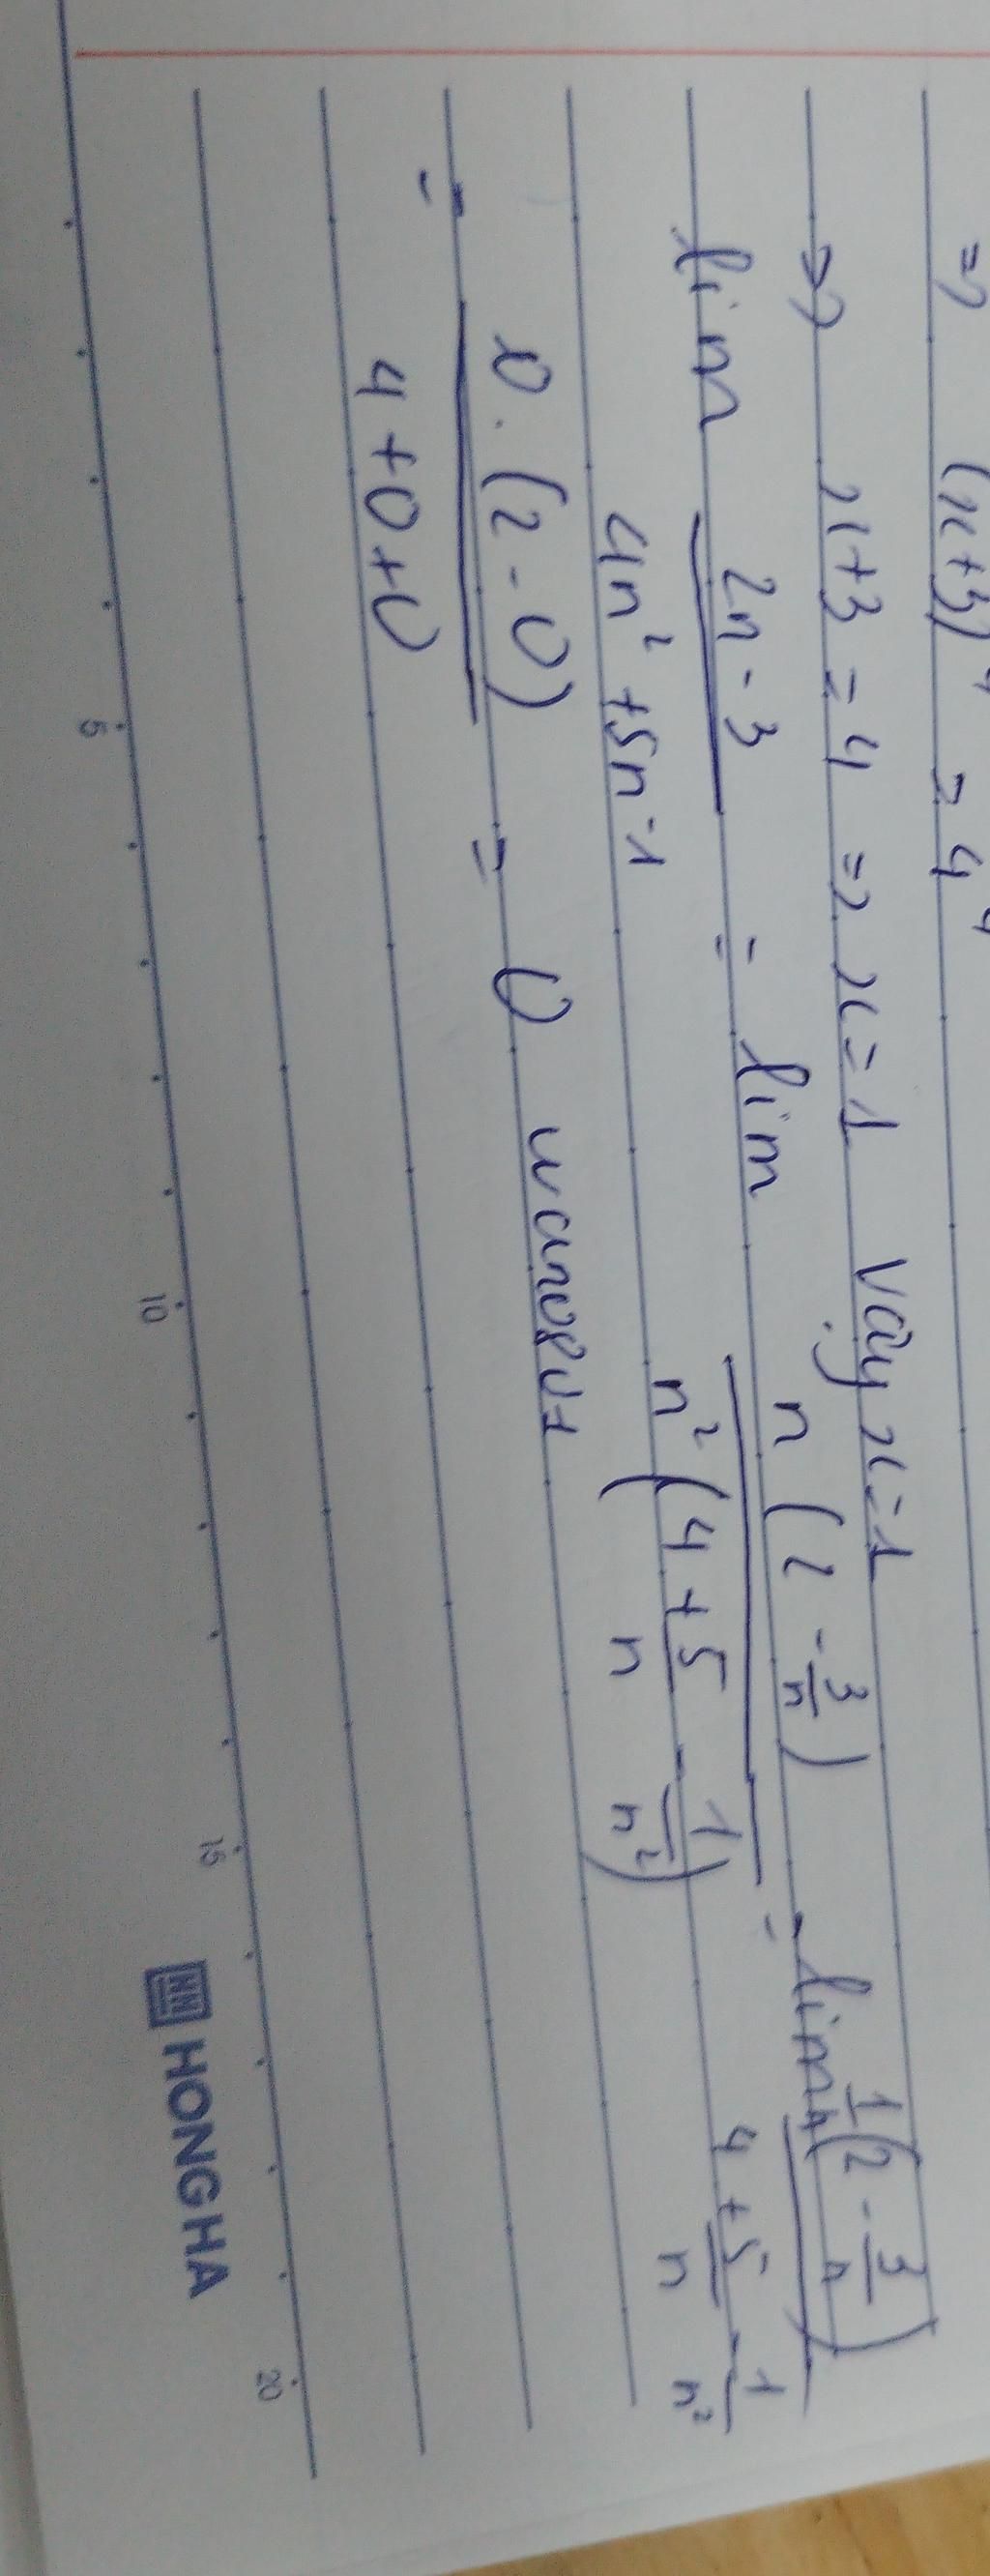 => (x+3)⁴ = 4⁴
=> x+3 = 4 => x = 1 Vậy x=1
lim (2n - 3)/(4n² + 5n - 1) = lim n(2 - 3/n)/(n²(4 + 5/n - 1/n²)) = lim 1/n(2 - 3/n)/(4 + 5/n - 1/n²)
= 0.(2 - 0)/(4 + 0 + 0) = 0
5 10 15 20
HONG HA